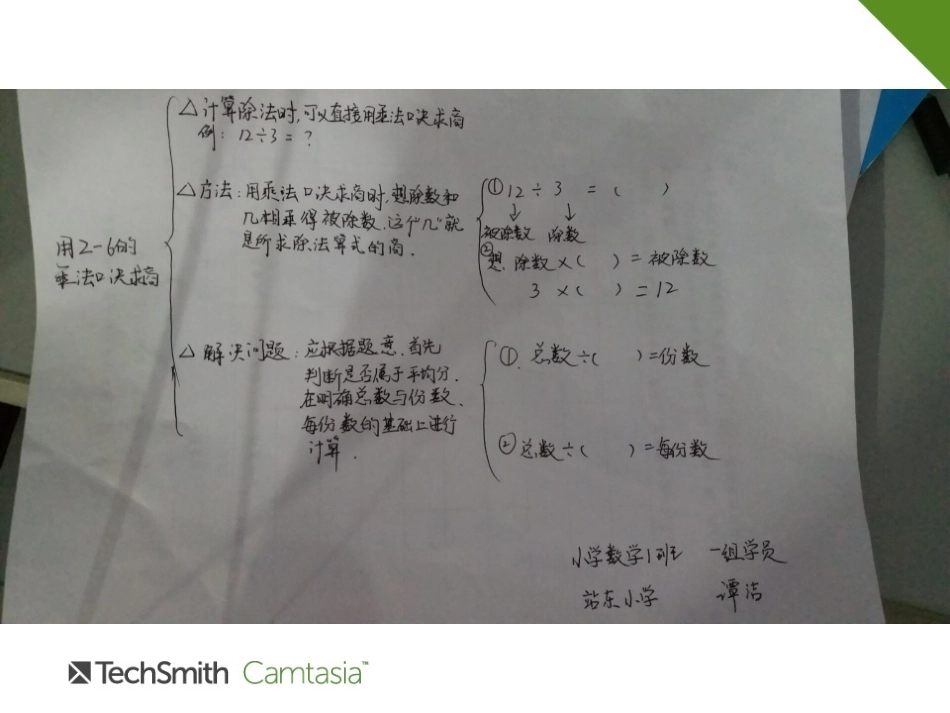 用2-6的
乘法口决求商
△计算除法时,可以直接用乘法口决求商
例：12÷3=？
△方法：用乘法口决求商时,想除数和
几相乘得被除数.这个"几"就
是所求除法算式的商.
①12÷3=（ ）
↓ ↓
被除数 除数
②想.除数×（ ）=被除数
3×（ ）=12
△解决问题：应根据题意.首先
判断是否属于平均分.
在明确总数与份数、
每份数的基础上进行
计算.
①.总数÷（ ）=份数
②总数÷（ ）=每份数
小学数学1班 一组学员
站东小学 谭洁
TechSmith Camtasia™